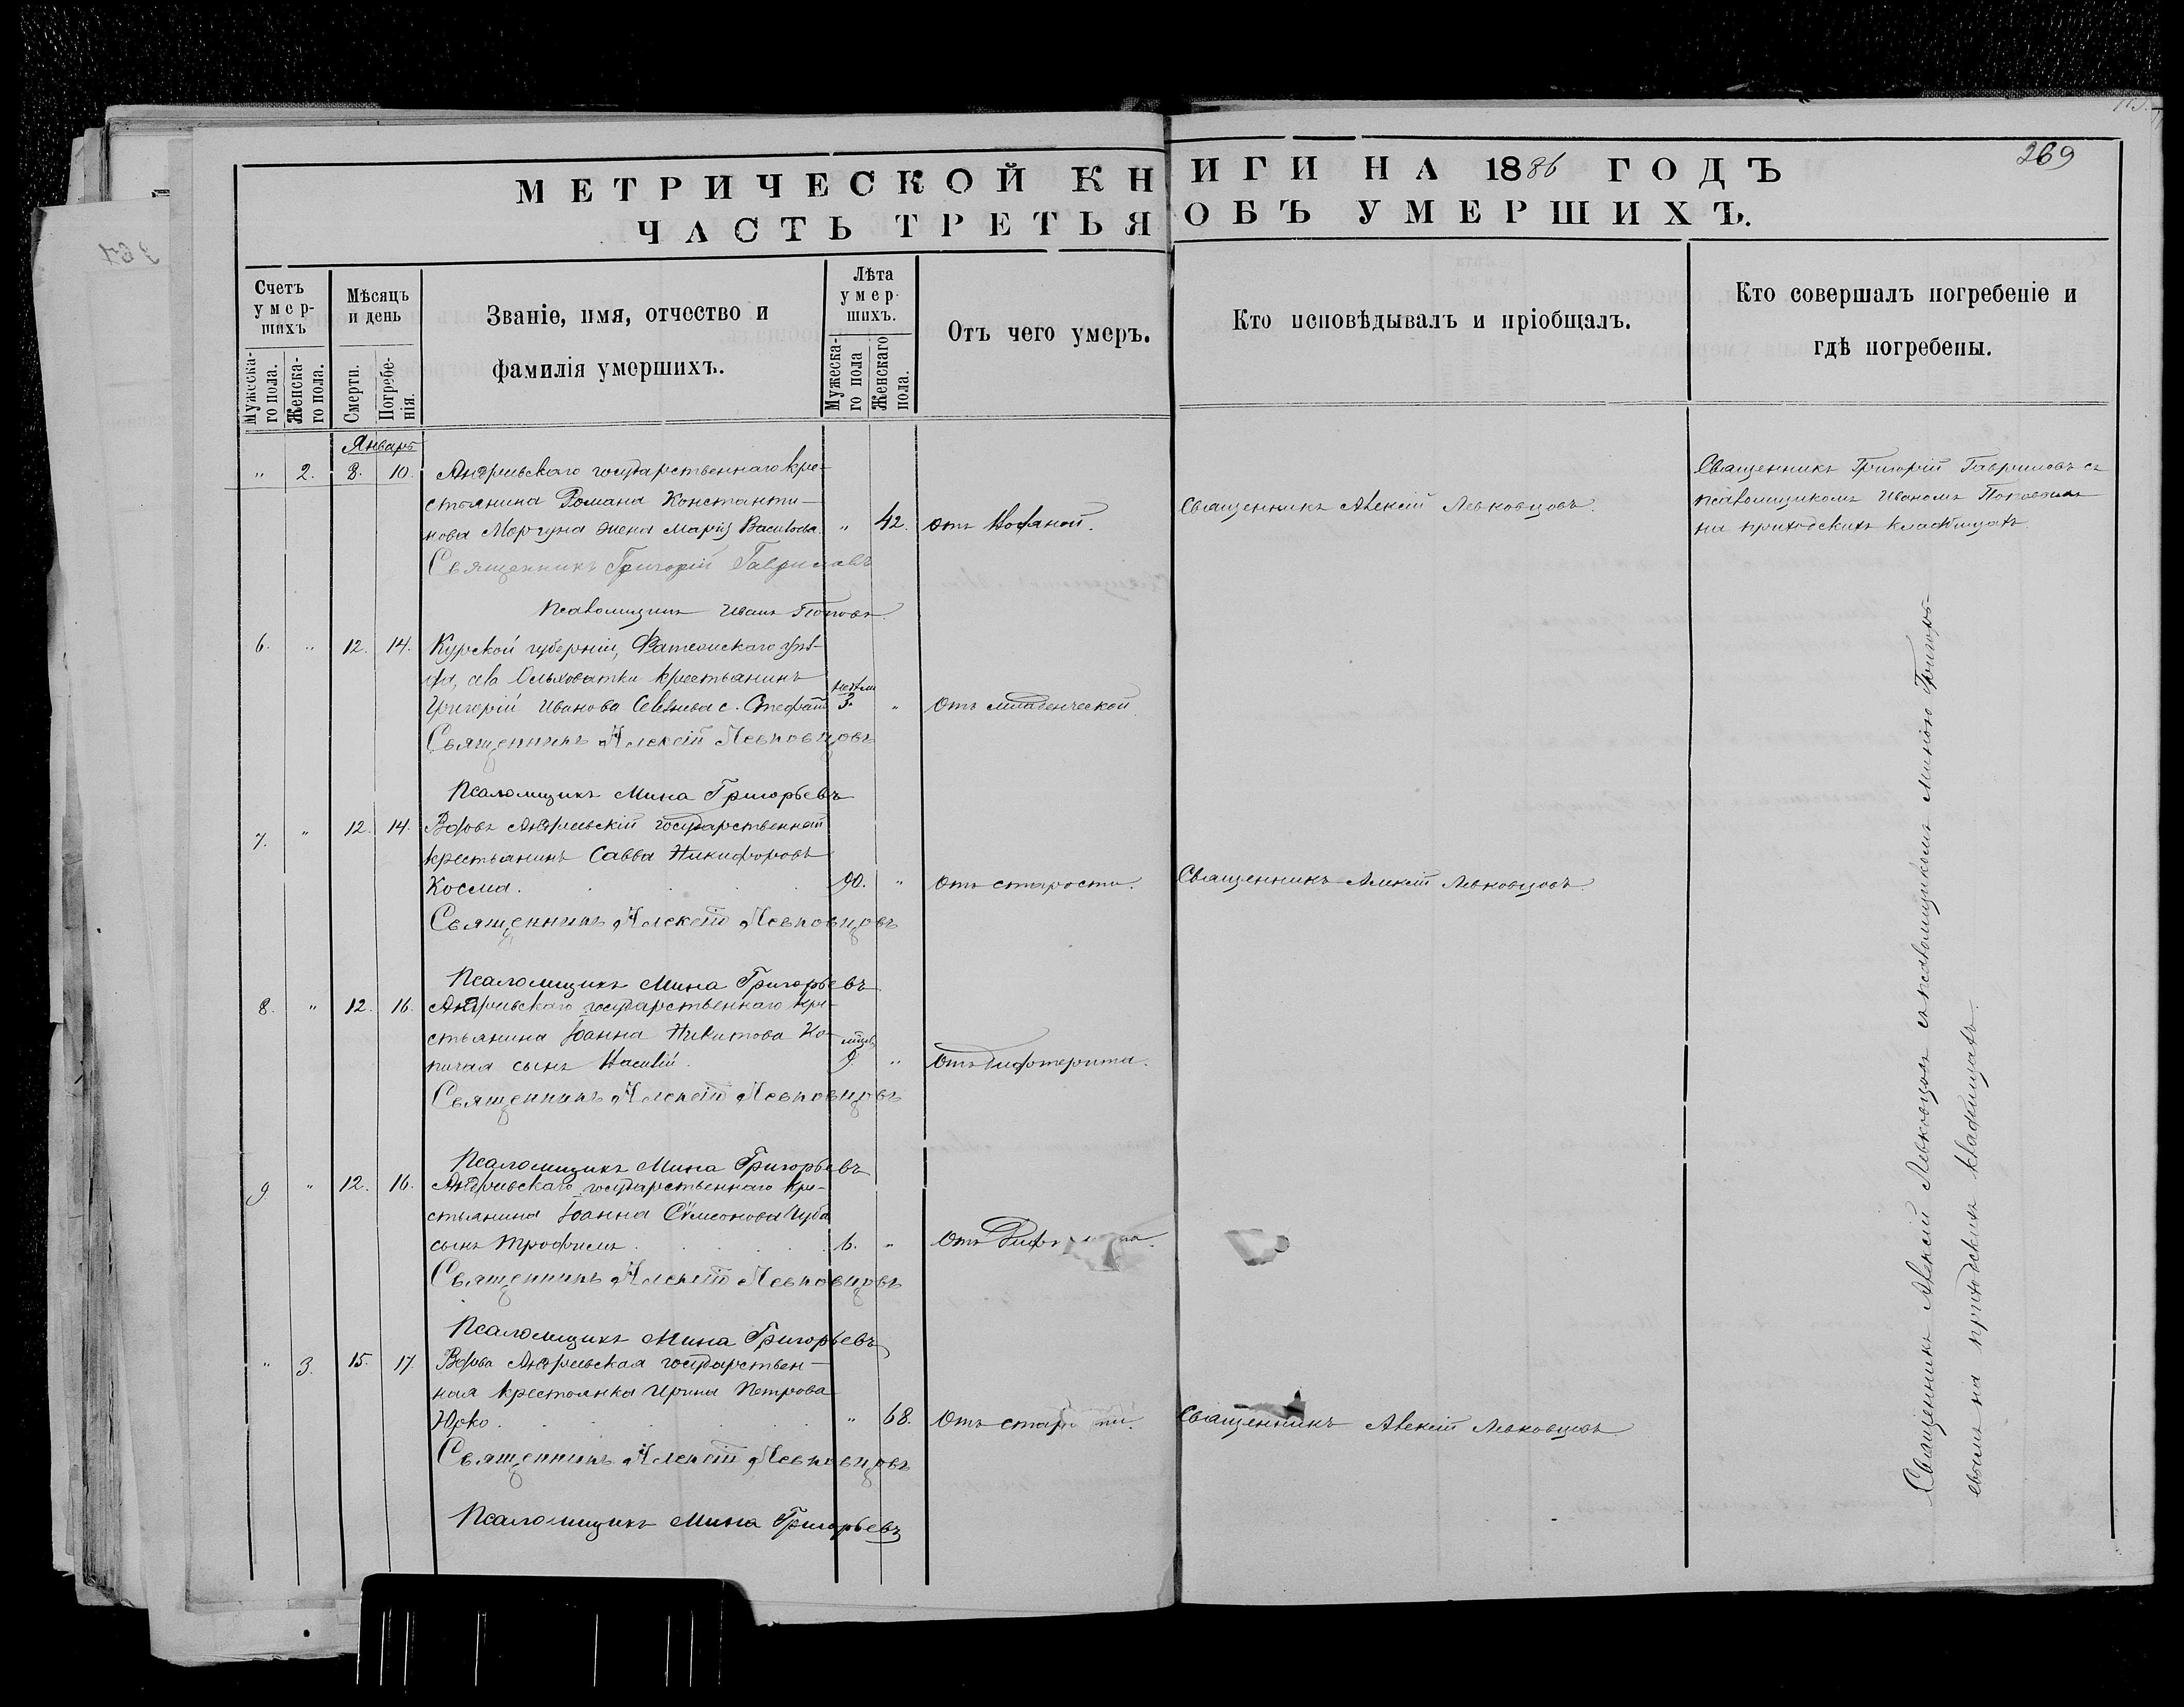 269
МЕТРИЧЕСКОЙ КНИГИ НА 1886 ГОДЪ
ЧАСТЬ ТРЕТЬЯ ОБЪ УМЕРШИХЪ.
Счетъ умер-шихъ
Мужеска-го пола.
Женска-го пола.
Мѣсяцъ и день
Смерти.
Погребе-нія.
Званіе, имя, отчество и
фамилія умершихъ.
Лѣта умер-шихъ.
Мужеска-го пола
Женскаго пола.
Отъ чего умеръ.
Кто исповѣдывалъ и пріобщалъ.
Кто совершалъ погребеніе и
гдѣ погребены.
Январь
" 2. 8. 10. Андреевскаго государственнаго кре-
стьянина Романа Константи-
нова Моргуна жена Марія " 42. отъ
Священникъ Алексій Левковцовъ.
Священникъ Григорій Гавриловъ съ
псаломщикомъ Иваномъ Поповымъ
на приходскихъ кладбищахъ.
Священникъ Григорій Гавриловъ
Псаломщикъ Иванъ Поповъ.
6. " 12. 14. Курской губерніи, Фатежскаго уѣз-
да, с. Ольховатки крестьянинъ
Григорій Иванова с. Стефанъ 3. " Отъ младенческой
Священникъ Алексій Левковцовъ
Псаломщикъ Мина Григорьевъ
7. " 12. 14. Вдовъ Андреевскій государственный
крестьянинъ Савва Никифоровъ
Косма. 90. " Отъ старости. Священникъ Алексій Левковцовъ.
Священникъ Алексій Левковцовъ
Псаломщикъ Мина Григорьевъ
8. " 12. 16. Андреевскаго государственнаго кре-
стьянина Іоанна Никитова Ко-
сынъ 9. " Отъ дифтерита.
Священникъ Алексій Левковцовъ
Псаломщикъ Мина Григорьевъ
9 " 12. 16. Андреевскаго государственнаго кре-
стьянина Іоанна Сѵмеонова
сынъ Трофимъ. 6. " Отъ
Священникъ Алексій Левковцовъ
Псаломщикъ Мина Григорьевъ
" 3. 15. 17. Вдова Андреевская государствен-
ная крестьянка Ирина Петрова
Юрко. " 68. Отъ старости. Священникъ Алексій Левковцовъ.
Священникъ Алексій Левковцовъ
Псаломщикъ Мина Григорьевъ
Священникъ Алексій Левковцовъ съ псаломщикомъ Миною Григорь-
евымъ на приходскихъ кладбищахъ.